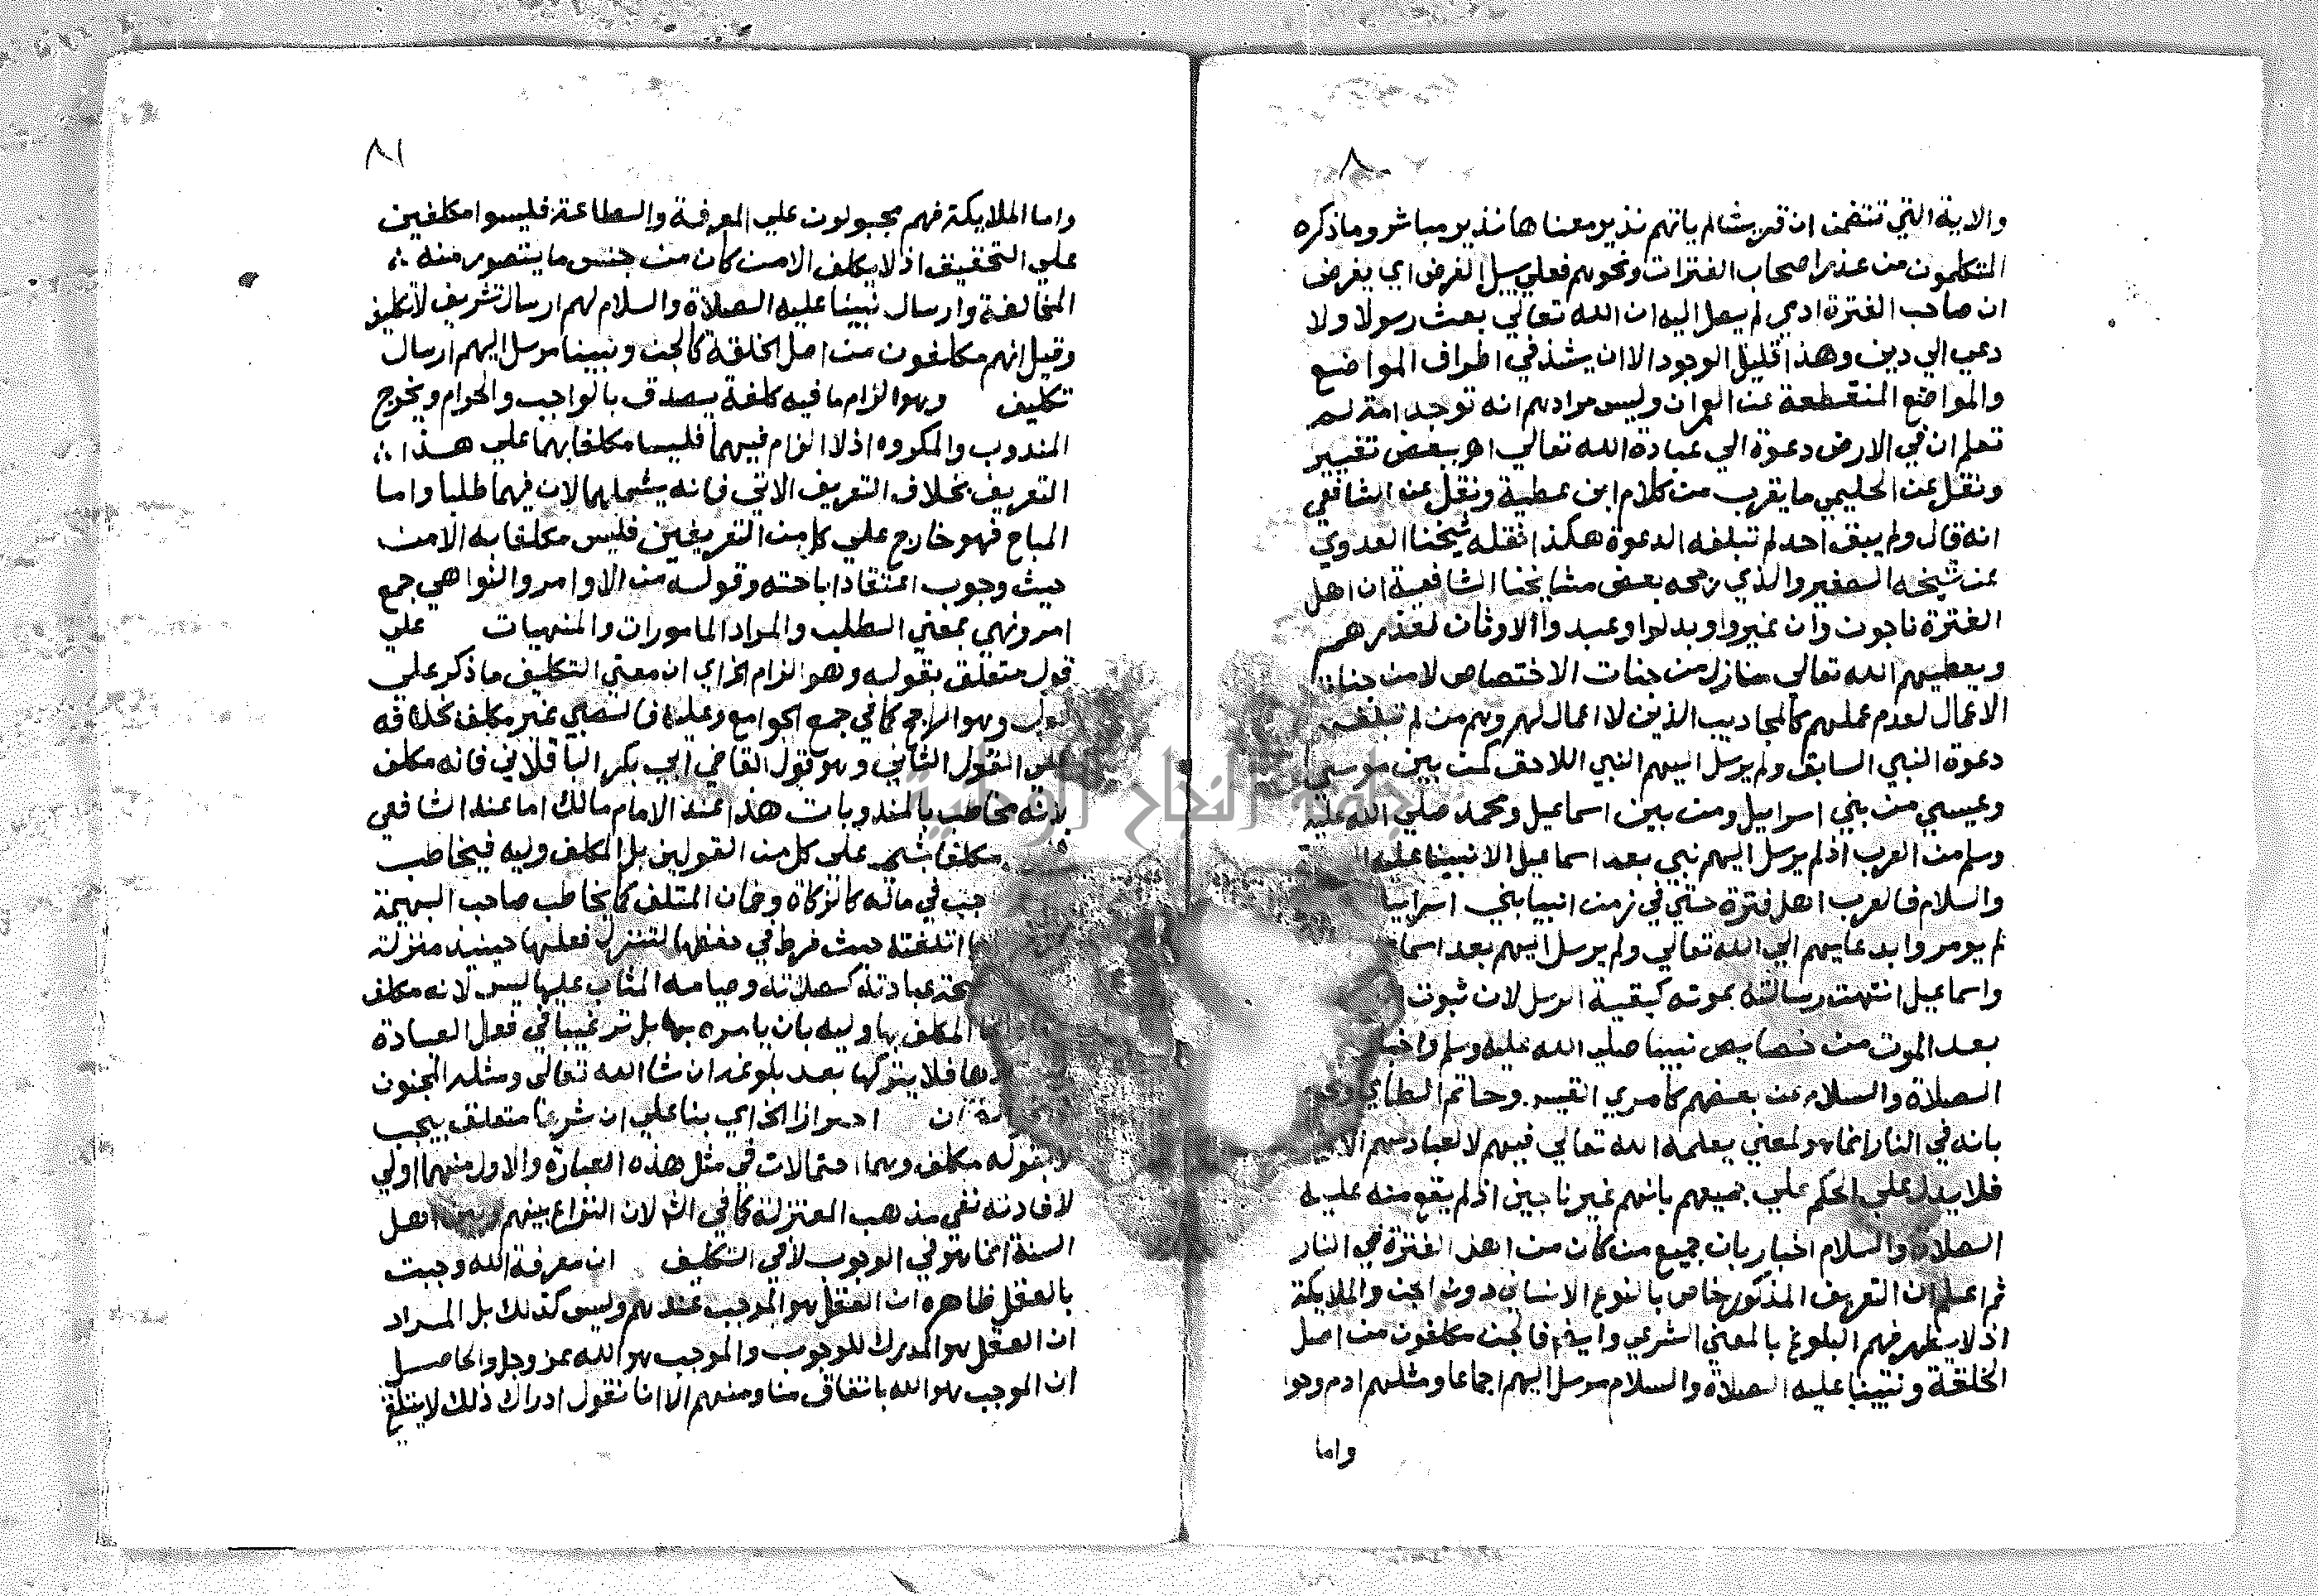 ٨٠
والاية التي تتضمن ان قريشا لم ياتهم نذير معناها نذير مباشر وما ذكره
المتكلمون من عذر اصحاب الفترات ونحوهم فعلي سبيل الفرض اي يفرض
ان صاحب الفترة ادمي لم يصل اليه ان الله تعالي بعث رسولا ولا
دعي الي دين وهذا قليل الوجود الا ان يشذ في اطراف المواضع
والمواضع المنقطعة عن العمران وليس مرادهم انه توجد امة لم
تعلم ان في الارض دعوة الي عبادة الله تعالي اهر ببعض تغيير
ونقل عن الحليمي ما يقرب من كلام ابن عطية ونقل عن الشافعي
انه قال ولم يبق احد لم تبلغه الدعوة هكذا نقله شيخنا العدوي
عن شيخه الصغير والذي رجحه بعض مشايخنا الشافعية ان اهل
الفترة ناجون وان غيروا وبدلوا وعبدوا الاوثان لعذرهم
ويعطيهم الله تعالي منازل من جنات الاختصاص لا من جنات
الاعمال لعدم عملهم كالمجاديب الذين لا اعمال لهم وهم من لم تبلغهم
دعوة النبي السابق ولم يرسل اليهم النبي اللاحق كمن بين موسي
وعيسي من بني اسرايل ومن بين اسماعيل ومحمد صلي الله عليه
وسلم من العرب اذ لم يرسل اليهم نبي بعد اسماعيل الا نبينا عليه
والسلام فالعرب اهل فترة حتي في زمن انبيا بني اسرايل
لم يومروا بدعايهم الي الله تعالي ولم يرسل اليهم بعد اسما
واسماعيل انتهت رسالته بموته كبقية الرسل لان ثبوت
بعد الموت من خصايص نبينا صلي الله عليه وسلم واخبا
الصلاة والسلام عن بعضهم كامري القيس وحاتم الطاي
بانه في النار انما هو لمعني يعلمه الله تعالي فيهم لا لعبادتهم الا
فلا يدل علي الحكم علي جميعهم بانهم غير ناجين اذ لم يقع منه عليه
الصلاة والسلام اخبار بان جميع من كان من اهل الفترة في النار
ثم اعلم ان التعريف المذكور خاص بالنوع الانساني دون الجن والملايكة
اذ لا يظهر فيهم البلوغ بالمعني الشرعي وايضا فالجن مكلفون من اصل
الخلقة ونبينا عليه الصلاة والسلام مرسل اليهم اجماعا ومثلهم ادم وحوا
واما
٨١
واما الملايكة فهم مجبولون علي المعرفة والطاعة فليسوا مكلفين
علي التحقيق اذ لا يكلف الا من كان من جنس ما يتصور منه
المخالفة وارسال نبينا عليه الصلاة والسلام لهم ارسال تشريف لا تكليف
وقيل انهم مكلفون من اصل الخلقة كالجن ونبينا مرسل اليهم ارسال
تكليف وهو الزام ما فيه كلفة يصدق بالواجب والحرام ويخرج
المندوب والمكروه اذ لا الزام فيهما فليسا مكلفا بهما علي هذا
التعريف بخلاف التعريف الاتي فانه يشملهما لان فيهما طلبا واما
المباح فهو خارج علي كل من التعريفين فليس مكلفا به الا من
حيث وجوب اعتقاد اباحته وقوله من الاوامر والنواهي جمع
امر ونهي بمعني الطلب والمراد المامورات والمنهيات علي
قول متعلق بقوله وهو الزام الخ اي ان معني التكليف ما ذكر علي
قول وهو الراجح كما في جمع الجوامع وعليه فالصبي غير مكلف بخلافه
علي القول الثاني وهو قول القاضي ابي بكر الباقلاني فانه مكلف
لانه مخاطب بالمندوبات هذا عند الامام مالك اما عند الشافعي
مكلفا بشي علي كل من القولين بل المكلف وليه فيخاطب
جب في ماله كالزكاة وضمان المتلف كما يخاطب صاحب البهيمة
اتلفته حيث فرط في حفظها لتنزل فعلها حينيذ منزلة
عبادته كصلاته وصيامه المثاب عليها ليس لانه مكلف
المكلف بها وليه بان يامره بها بل ترغيبا في فعل العبادة
فلا يتركها بعد بلوغه ان شا الله تعالي ومثله المجنون
ان احراز الخ اي بنا علي ان شرعا متعلق بيجب
لا بقوله مكلف وهما احتمالات في مثل هذه العبارة والاول منهما اولي
لافادته نفي مذهب المعتزلة كما في الش لان النزاع بينهم وبين اهل
السنة انما هو في الوجوب لا في التكليف ان معرفة الله وجبت
بالعقل ظاهره ان العقل هو الموجب عندهم وليس كذلك بل المراد
ان العقل هو المدرك للوجوب والموجب هو الله عز وجل والحاصل
ان الموجب هو الله باتفاق منا ومنهم الا اننا نقول ادراك ذلك لا يتلقي
جامعة النجاح الوطنية